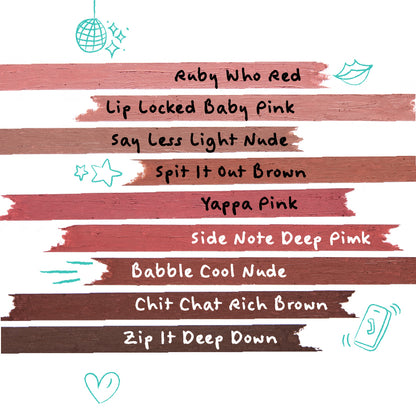 Ruby Who Red
Lip Locked Baby Pink
Say Less Light Nude
Spit It Out Brown
Yappa Pink
Side Note Deep Pink
Babble Cool Nude
Chit Chat Rich Brown
Zip It Deep Down